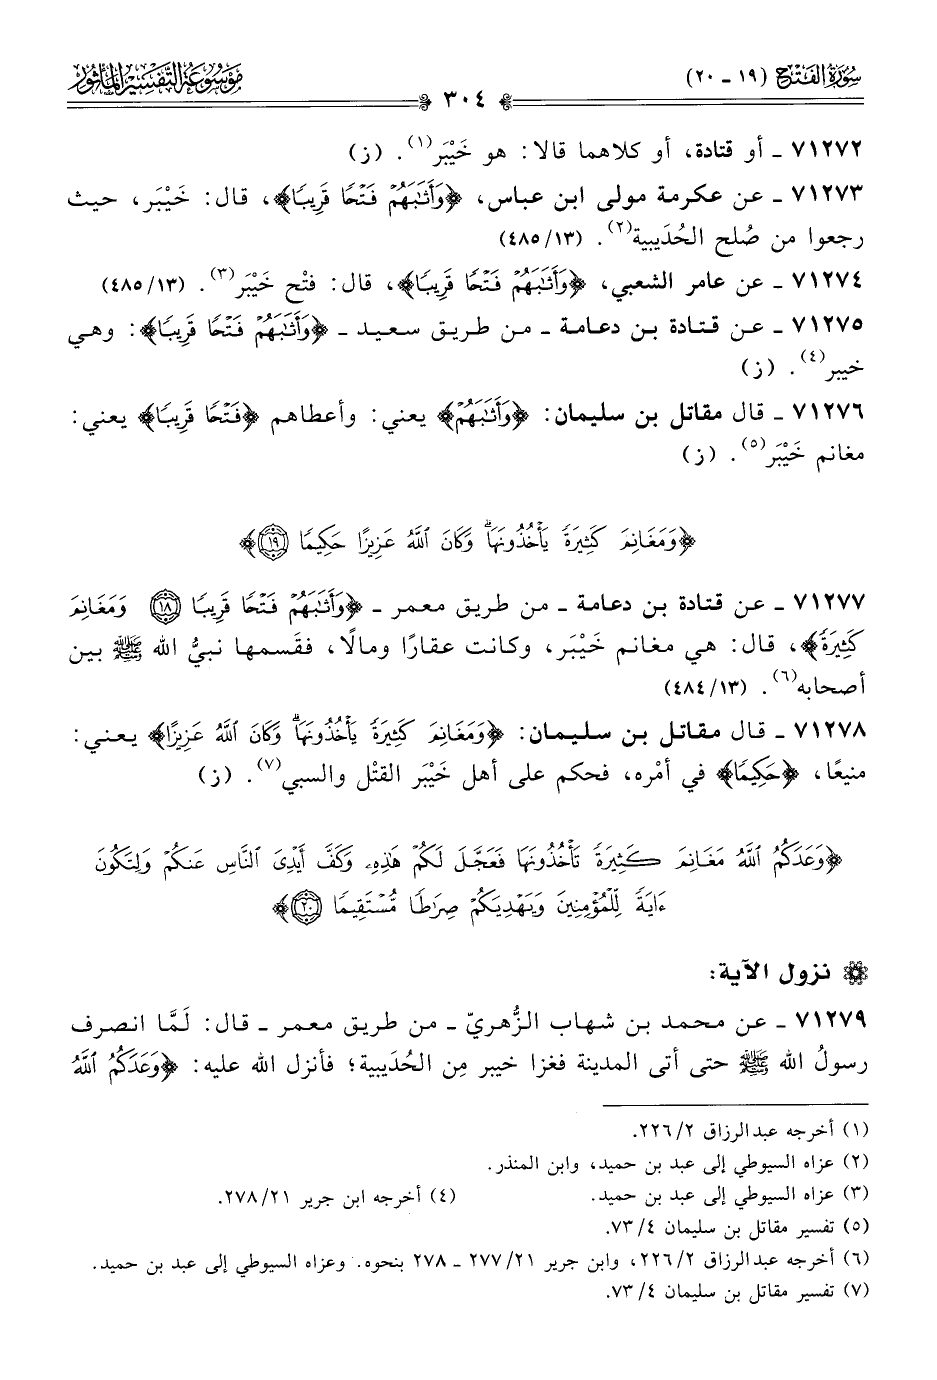 سُورَةُ الفَتْحِ (١٩ - ٢٠)
٣٠٤
مَوْسُوعَةُ التَّفْسِيرِ المَأْثُورِ
٧١٢٧٢ - أو قتادة، أو كلاهما قالا: هو خَيْبَر(١). (ز)
٧١٢٧٣ - عن عكرمة مولى ابن عباس، ﴿وَأَثَٰبَهُمۡ فَتۡحٗا قَرِيبٗا﴾، قال: خَيْبَر، حيث
رجعوا من صُلح الحُدَيبية(٢). (٤٨٥/١٣)
٧١٢٧٤ - عن عامر الشعبي، ﴿وَأَثَٰبَهُمۡ فَتۡحٗا قَرِيبٗا﴾، قال: فتْح خَيْبَر(٣). (٤٨٥/١٣)
٧١٢٧٥ - عن قتادة بن دعامة - من طريق سعيد - ﴿وَأَثَٰبَهُمۡ فَتۡحٗا قَرِيبٗا﴾: وهي
خيبر(٤). (ز)
٧١٢٧٦ - قال مقاتل بن سليمان: ﴿وَأَثَٰبَهُمۡ﴾ يعني: وأعطاهم ﴿فَتۡحٗا قَرِيبٗا﴾ يعني:
مغانم خَيْبَر(٥). (ز)
﴿وَمَغَانِمَ كَثِيرَةٗ يَأۡخُذُونَهَاۗ وَكَانَ ٱللَّهُ عَزِيزًا حَكِيمٗا ١٩﴾
٧١٢٧٧ - عن قتادة بن دعامة - من طريق معمر - ﴿وَأَثَٰبَهُمۡ فَتۡحٗا قَرِيبٗا ١٨ وَمَغَانِمَ
كَثِيرَةٗ﴾، قال: هي مغانم خَيْبَر، وكانت عقارًا ومالًا، فقَسمها نبيُّ الله ﷺ بين
أصحابه(٦). (٤٨٤/١٣)
٧١٢٧٨ - قال مقاتل بن سليمان: ﴿وَمَغَانِمَ كَثِيرَةٗ يَأۡخُذُونَهَاۗ وَكَانَ ٱللَّهُ عَزِيزًا﴾ يعني:
منيعًا، ﴿حَكِيمٗا﴾ في أمْره، فحكم على أهل خَيْبَر القتْل والسبي(٧). (ز)
﴿وَعَدَكُمُ ٱللَّهُ مَغَانِمَ كَثِيرَةٗ تَأۡخُذُونَهَا فَعَجَّلَ لَكُمۡ هَٰذِهِۦ وَكَفَّ أَيۡدِيَ ٱلنَّاسِ عَنكُمۡ وَلِتَكُونَ
ءَايَةٗ لِّلۡمُؤۡمِنِينَ وَيَهۡدِيَكُمۡ صِرَٰطٗا مُّسۡتَقِيمٗا ٢٠﴾
نزول الآية:
٧١٢٧٩ - عن محمد بن شهاب الزُّهريّ - من طريق معمر - قال: لَمَّا انصرف
رسولُ الله ﷺ حتى أتى المدينة فغزا خيبر مِن الحُدَيبية؛ فأنزل الله عليه: ﴿وَعَدَكُمُ ٱللَّهُ
(١) أخرجه عبدالرزاق ٢/ ٢٢٦.
(٢) عزاه السيوطي إلى عبد بن حميد، وابن المنذر.
(٣) عزاه السيوطي إلى عبد بن حميد. (٤) أخرجه ابن جرير ٢١/ ٢٧٨.
(٥) تفسير مقاتل بن سليمان ٤/ ٧٣.
(٦) أخرجه عبدالرزاق ٢/ ٢٢٦، وابن جرير ٢١/ ٢٧٧ - ٢٧٨ بنحوه. وعزاه السيوطي إلى عبد بن حميد.
(٧) تفسير مقاتل بن سليمان ٤/ ٧٣.